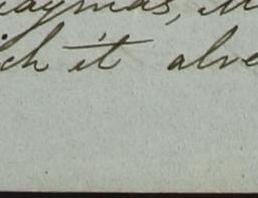 uaymas, 
ich it alre